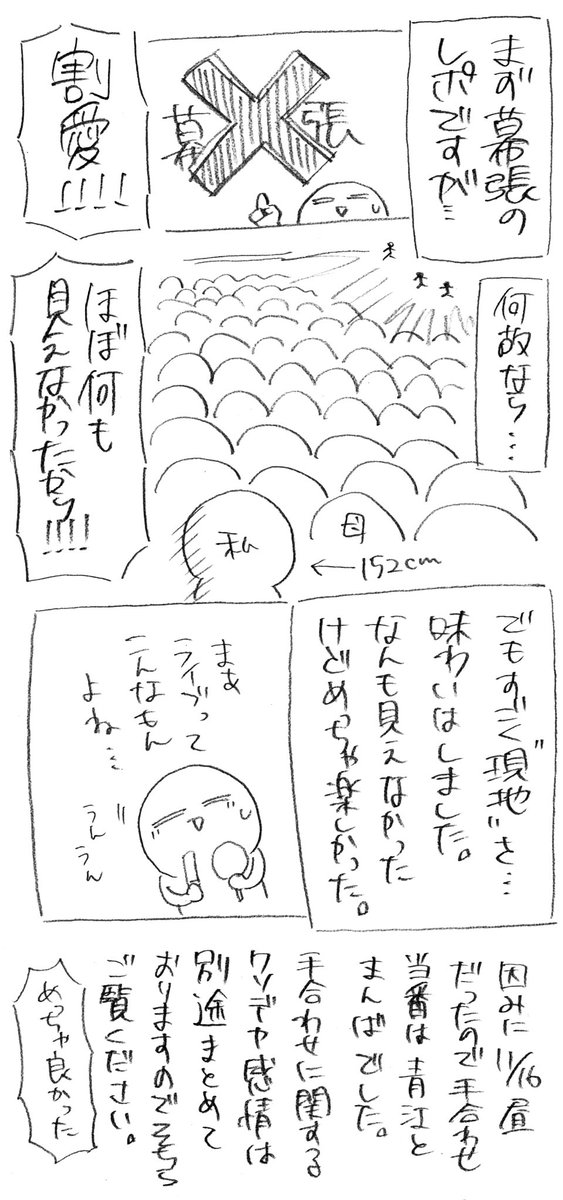 まず幕張の
レポですが…
幕張
割愛!!!!
何故なら…
母
私
←152cm
ほぼ何も
見えなかったから
!!!!
でもすごく"現地"を…
味わいはしました。
なんも見えなかった
けどめっちゃ楽しかった。
まぁ
ライブって
こんなもん
よね…
うんうん
因みに11/16昼
だったので手合わせ
当番は青江と
まんばでした。
手合わせに関する
クソデカ感情は
別途まとめて
おりますのでそちら
ご覧ください。
めっちゃ良かった